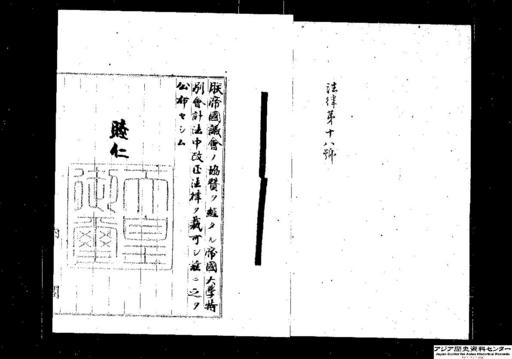 法律第十八號
朕帝國議會ノ協贊ヲ經タル帝國大學特
別會計法中改正法律ヲ裁可シ茲ニ之ヲ
公布セシム
睦仁
天皇
御璽
アジア歴史資料センター
Japan Center for Asian Historical Records